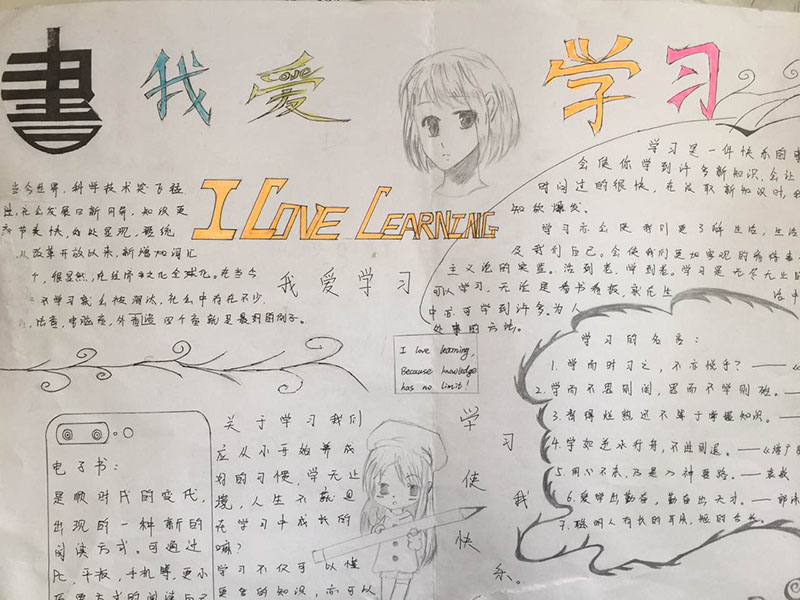 書
我爱
Love
学习
I LOVE LEARNING
我爱学习
当今世界,科学技术突飞猛
进,社会发展日新月异,知识更
从改革开放以来,新增加词汇
不学习就会被淘汰,社会中存在不少
四个盲就是最好的例子。
学习是一件快乐的事
会使你学到许多新知识,会让
时间过的很快,在汲取新知识时,我
知欲爆发。
学习亦会使我们更了解生活,生活
及我们自己。会使我们更加客观的看待事
主义论的实蓝。活到老,学到老。学习是无尽无止的
可以学习。无论是看书看报,就连生活中
中亦可学到许多,为人
处事的方法。
I love learning,
Because knowledge
has no limit!
学习的名言:
1.学而时习之,不亦悦乎?——《
2.学而不思则罔,思而不学则殆。——
3.背得烂熟还不等于掌握知识。——
4.学如逆水行舟,不进则退。——《增广
5.用心不杂,乃是入神要路。——袁枚
6.聪明出勤奋,勤奋出天才。——郭沫
7.聪明人有长的耳朵,短的舌头。
学习使我快乐。
电子书:
是顺时代的变化,
出现的一种新的
阅读方式。可通过
Pc,平板,手机等,更小
关于学习我们
应从小开始养成
好的习惯,学无止
境,人生不就是
在学习中成长的
嘛?
学习不仅可以懂
更多的知识,亦可以